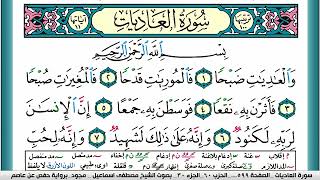 سُورَةُ العَادِيَاتِ
بِسْمِ اللَّهِ الرَّحْمَٰنِ الرَّحِيمِ
وَالْعَٰدِيَٰتِ ضَبْحًا ١ فَالْمُورِيَٰتِ قَدْحًا ٢ فَالْمُغِيرَٰتِ صُبْحًا
٣ فَأَثَرْنَ بِهِۦ نَقْعًا ٤ فَوَسَطْنَ بِهِۦ جَمْعًا ٥ إِنَّ الْإِنسَٰنَ
لِرَبِّهِۦ لَكَنُودٌ ٦ وَإِنَّهُۥ عَلَىٰ ذَٰلِكَ لَشَهِيدٌ ٧ وَإِنَّهُۥ لِحُبِّ
سورة العاديات _ الصفحة ٥٩٩ _ الحزب ٦٠ _ الجزء ٣٠ _ بصوت الشيخ مصطفى اسماعيل _ مجود _ برواية حفص عن عاصم